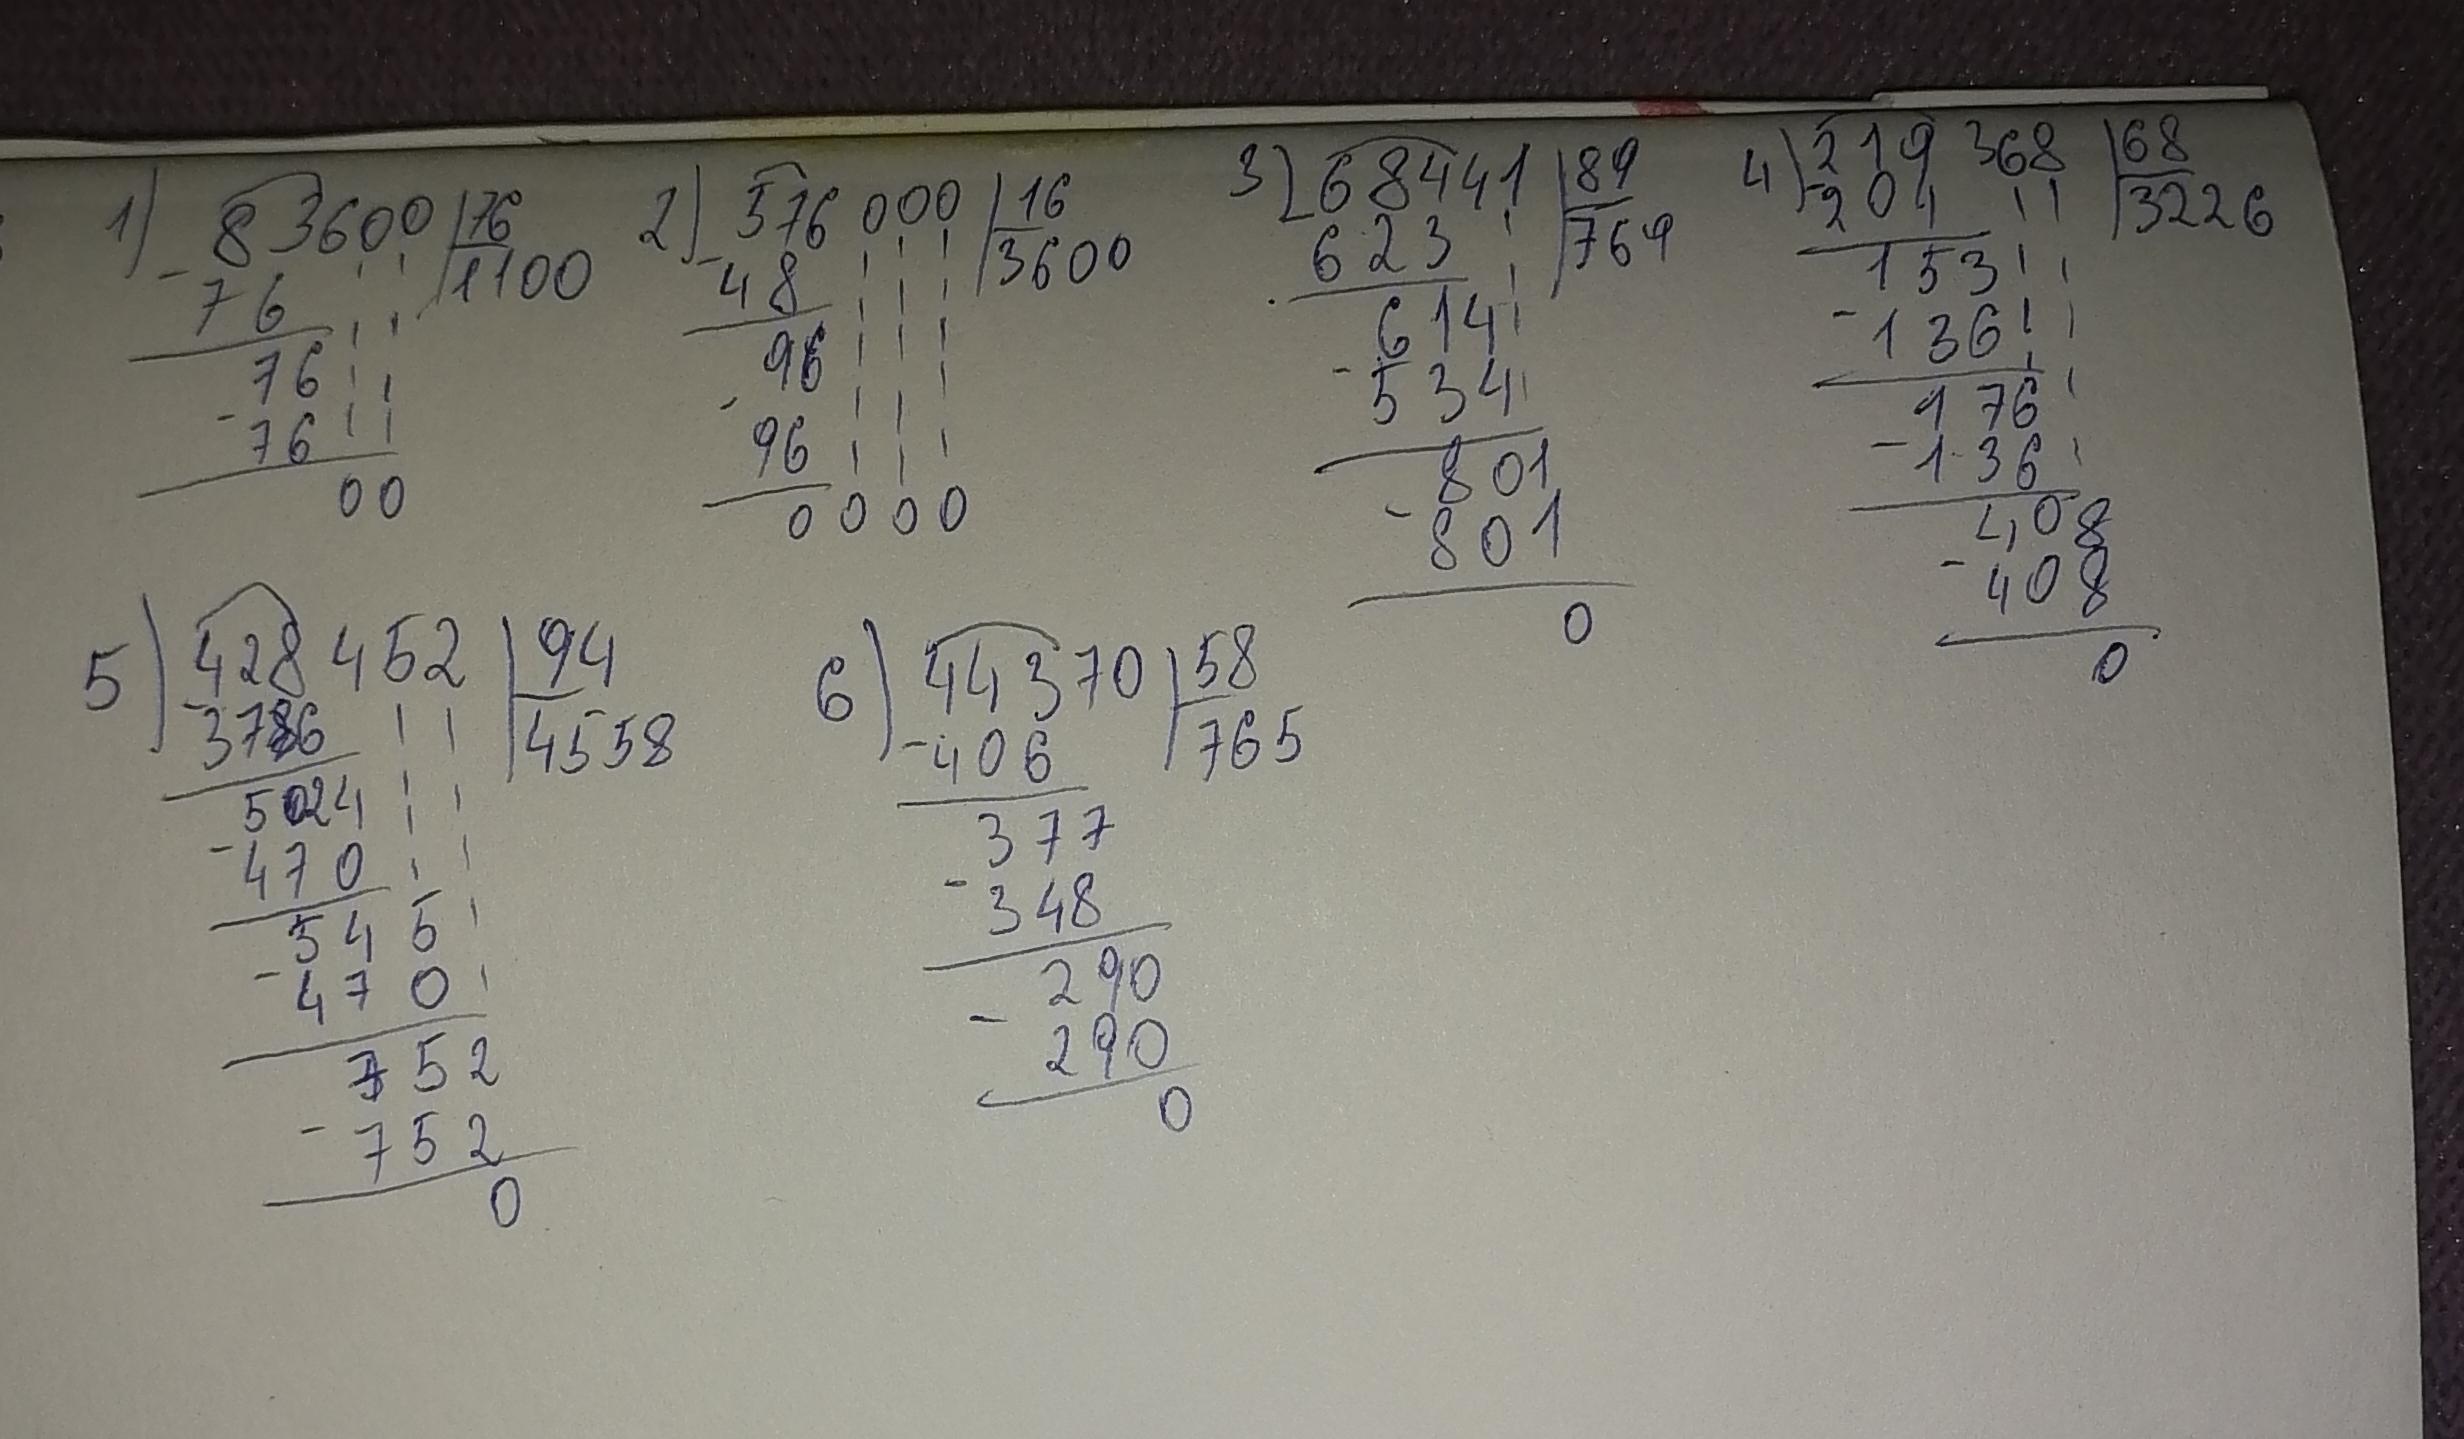 1) 83600 | 76
- 76 | 1100
76
- 76
00
2) 576 000 | 16
- 48 | 3600
96
- 96
0000
3) 68441 | 89
623 | 769
614
- 534
801
- 801
0
4) 219 368 | 68
- 204 | 3226
153
- 136
176
- 136
408
- 408
0
5) 428 452 | 94
- 376 | 4558
524
- 470
545
- 470
752
- 752
0
6) 44370 | 58
- 406 | 765
377
- 348
290
- 290
0